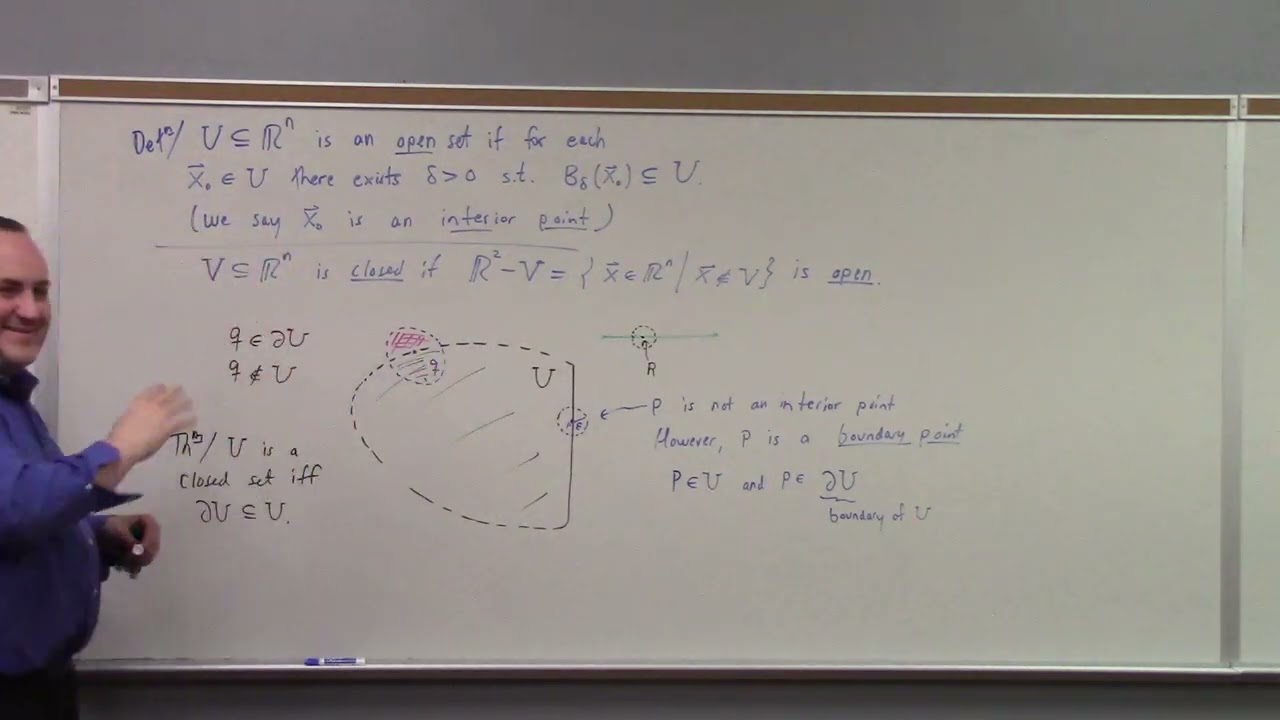 Defⁿ/ U ⊆ ℝⁿ is an open set if for each
x⃗₀ ∈ U there exists δ > 0 s.t. B_δ(x⃗₀) ⊆ U.
(we say x⃗₀ is an interior point)
V ⊆ ℝⁿ is closed if ℝ² - V = { x⃗ ∈ ℝⁿ / x⃗ ∉ V } is open.
q ∈ ∂U
q ∉ U
Thᵐ/ U is a
closed set iff
∂U ⊆ U.
q
U
R
P is not an interior point
However, P is a boundary point
P ∈ U and P ∈ ∂U
boundary of U